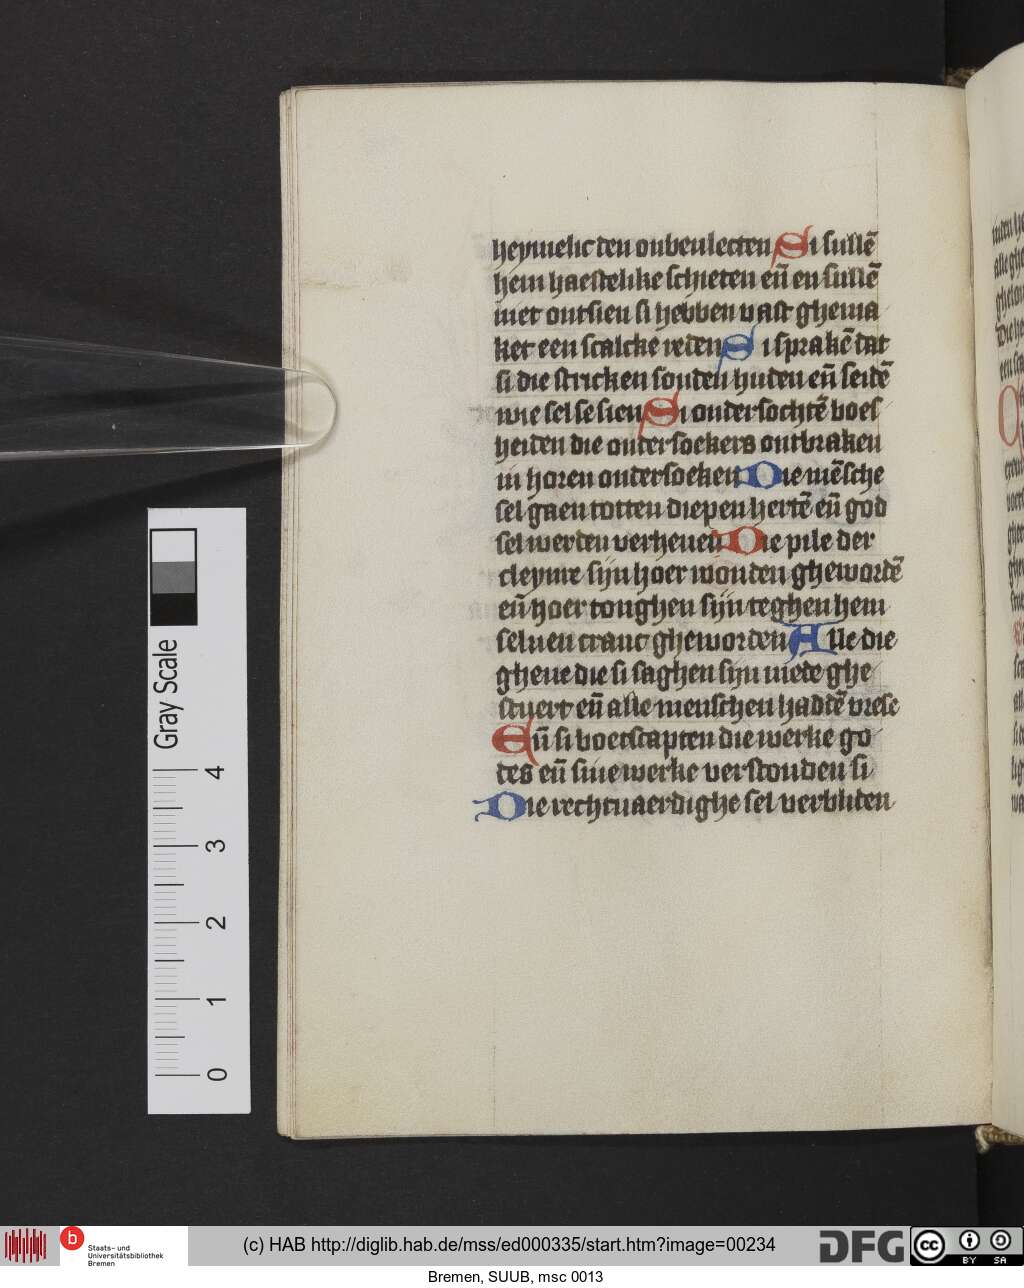 heymelic den onbeulecten Si sullē
hem haestelike schieten eñ en sullē
niet ontsien si hebben vast ghema
ket een scalcke reden Si sprakē dat
si die stricken souden huden eñ seidē
wie sel se sien Si ondersochtē boes
heiden die ondersoekers ontbraken
in horen ondersoeken Die mēsche
sel gaen totten diepen hertē eñ god
sel werden verheuen Die pile der
cleynre sijn hoer wonden ghewordē
eñ hoer tonghen sijn teghen hem
seluen cranc gheworden Alle die
ghene die si saghen sijn mede ghe
stuert eñ alle menschen hadtē vrese
Eñ si boetscapten die werke go
des eñ sine werke verstonden si
Die rechtuaerdighe sel verbliden
Gray Scale
4
3
2
1
0
b
Staats- und
Universitätsbibliothek
Bremen
(c) HAB http://diglib.hab.de/mss/ed000335/start.htm?image=00234
DFG
cc
BY SA
Bremen, SUUB, msc 0013